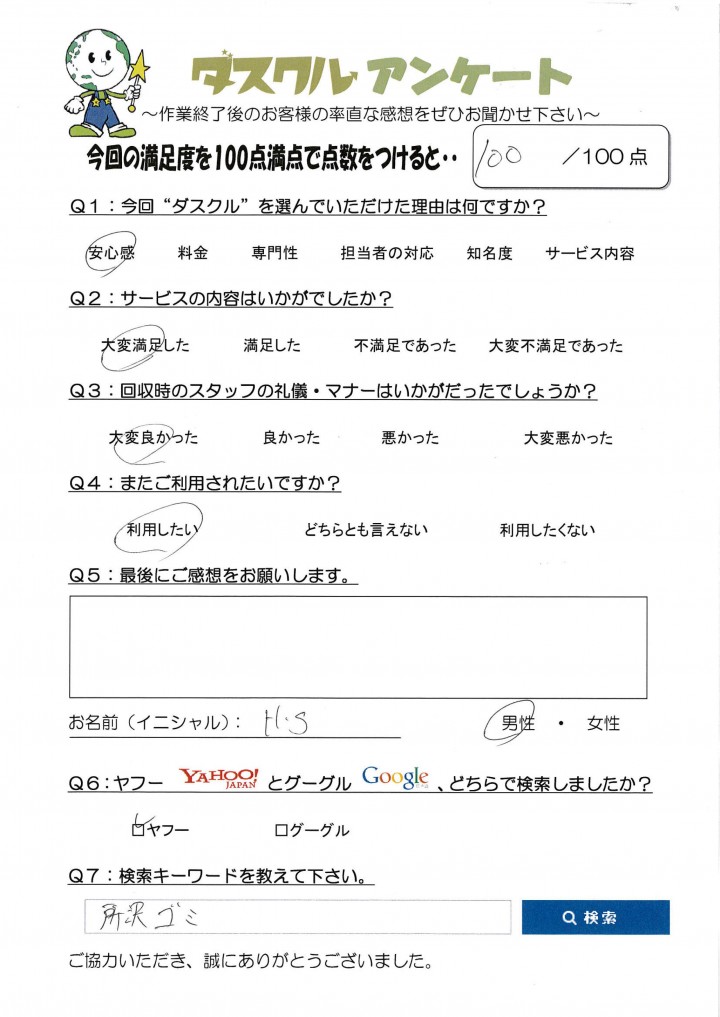 ダスクルアンケート
～作業終了後のお客様の率直な感想をぜひお聞かせ下さい～
今回の満足度を100点満点で点数をつけると・・ 100 ／100点
Q1：今回“ダスクル”を選んでいただけた理由は何ですか？
安心感 料金 専門性 担当者の対応 知名度 サービス内容
Q2：サービスの内容はいかがでしたか？
大変満足した 満足した 不満足であった 大変不満足であった
Q3：回収時のスタッフの礼儀・マナーはいかがだったでしょうか？
大変良かった 良かった 悪かった 大変悪かった
Q4：またご利用されたいですか？
利用したい どちらとも言えない 利用したくない
Q5：最後にご感想をお願いします。
お名前（イニシャル）： H・S 男性 ・ 女性
Q6：ヤフー YAHOO! JAPAN とグーグル Google 、どちらで検索しましたか？
☑ヤフー □グーグル
Q7：検索キーワードを教えて下さい。
所沢 ゴミ 検索
ご協力いただき、誠にありがとうございました。